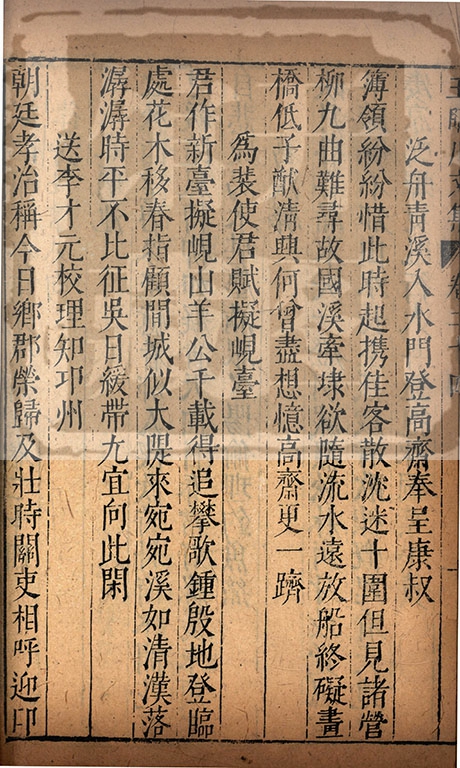 王臨川文集 卷二十四
泛舟青溪入水門登高齋奉呈康叔
簿領紛紛惜此時起携佳客散沈迷十圍但見諸營
柳九曲難尋故國溪牽埭欲隨流水遠放船終礙畫
橋低子猷清興何曾盡想憶高齋更一躋
爲裴使君賦擬峴臺
君作新臺擬峴山羊公千載得追攀歌鍾殷地登臨
處花木移春指顧間城似大隄來宛宛溪如清漢落
潺潺時平不比征吳日緩帶尤宜向此閑
送李才元校理知邛州
朝廷孝治稱今日鄉郡榮歸及壯時關吏相呼迎印